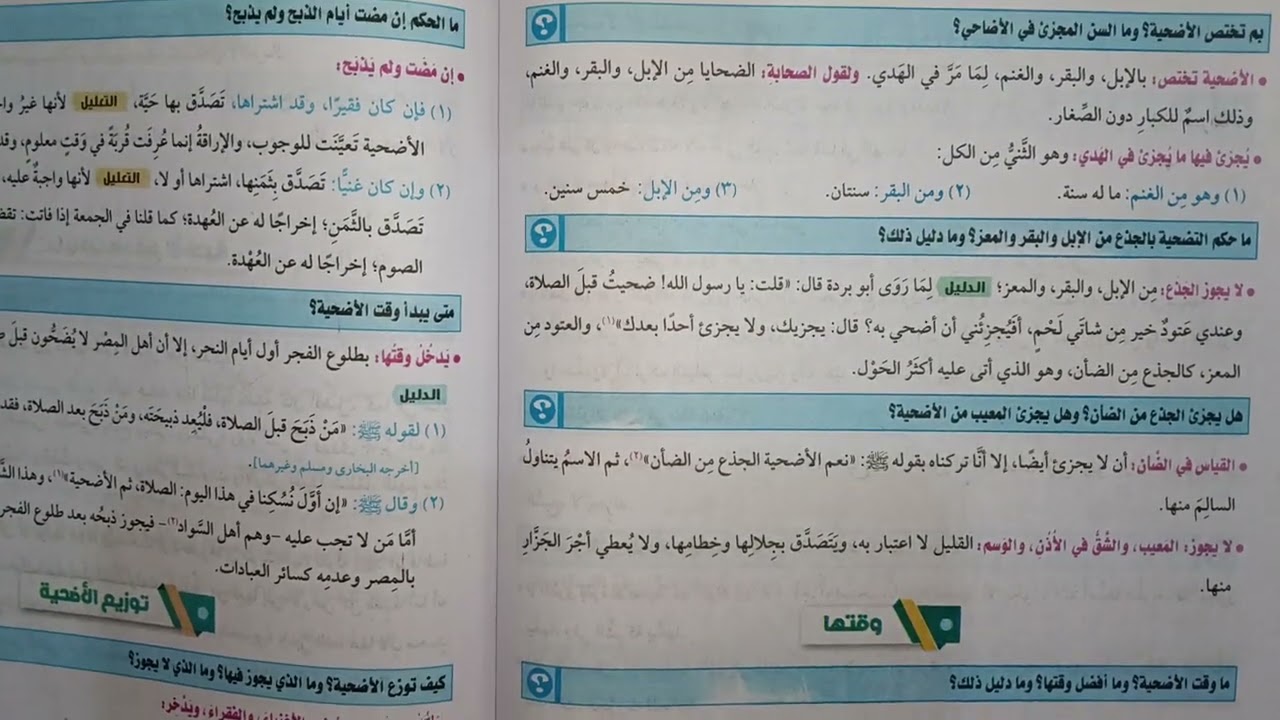 بم تختص الأضحية؟ وما السن المجزئ في الأضاحي؟
• الأضحية تختص: بالإبل، والبقر، والغنم، لِمَا مَرَّ في الهَدي. ولقول الصحابة: الضحايا مِن الإبل، والبقر، والغنم،
وذلك اسمٌ للكبارِ دون الصِّغار.
• يُجزئ فيها ما يُجزئ في الهَدي: وهو الثَّنيُّ مِن الكل:
(١) وهو مِن الغنم: ما له سنة. (٢) ومن البقر: سنتان. (٣) ومِن الإبل: خمس سنين.
ما حكم التضحية بالجذع من الإبل والبقر والمعز؟ وما دليل ذلك؟
• لا يجوز الجذع: مِن الإبل، والبقر، والمعز؛ الدليل لِمَا رَوَى أبو بردة قال: «قلت: يا رسول الله! ضحيتُ قبلَ الصلاة،
وعندي عَتودٌ خير مِن شاتَي لَحْمٍ، أفَيُجزِئُني أن أضحي به؟ قال: يجزيك، ولا يجزئ أحدًا بعدك»(١)، والعتود مِن
المعز، كالجذع مِن الضأن، وهو الذي أتى عليه أكثَرُ الحَوْل.
هل يجزئ الجذع من الضأن؟ وهل يجزئ المعيب من الأضحية؟
• القياس في الضأن: أن لا يجزئ أيضًا، إلا أنَّا تركناه بقوله ﷺ: «نعم الأضحية الجذع مِن الضأن»(٢)، ثم الاسمُ يتناولُ
السالِمَ منها.
• لا يجوز: المَعيب، والشَّقُّ في الأُذن، والوَسم: القليل لا اعتبار به، ويَتَصَدَّق بجِلالِها وخِطامِها، ولا يُعطي أجْرَ الجَزَّارِ
منها.
وقتها
ما وقت الأضحية؟ وما أفضل وقتها؟ وما دليل ذلك؟
ما الحكم إن مضت أيام الذبح ولم يذبح؟
• إن مَضَت ولم يَذبَح:
(١) فإن كان فقيرًا، وقد اشتراها، تَصَدَّق بها حَيَّة، التعليل لأنها غيرُ
الأضحية تَعيَّنَت للوجوب، والإراقةُ إنما عُرِفَت قُربَةً في وَقتٍ معلومٍ،
(٢) وإن كان غنيًّا: تَصَدَّق بِثَمَنِها، اشتراها أو لا، التعليل لأنها واجبةٌ عليه،
تَصَدَّق بالثَّمَنِ؛ إخراجًا له عن العُهدة؛ كما قلنا في الجمعة إذا فاتت:
الصوم؛ إخراجًا له عن العُهْدة.
متى يبدأ وقت الأضحية؟
• يَدخُلُ وقتُها: بطلوع الفجر أول أيام النحر، إلا أن أهل المِصْر لا يُضَحُّون قبلَ
الدليل
(١) لقوله ﷺ: «مَنْ ذَبَحَ قبلَ الصلاة، فليُعِد ذبيحَتَه، ومَنْ ذَبَحَ بعد الصلاة، فقد
[أخرجه البخاري ومسلم وغيرهما].
(٢) وقال ﷺ: «إن أوَّلَ نُسُكِنا في هذا اليوم: الصلاة، ثم الأضحية»(١)، وهذا
أمَّا مَن لا تجب عليه –وهم أهل السَّواد(٢)– فيجوز ذبحُه بعد طلوع الفجر
بالمِصر وعدمِه كسائر العبادات.
توزيع الأضحية
كيف توزع الأضحية؟ وما الذي يجوز فيها؟ وما الذي لا يجوز؟
والفقراء، ويَدَّخِر: